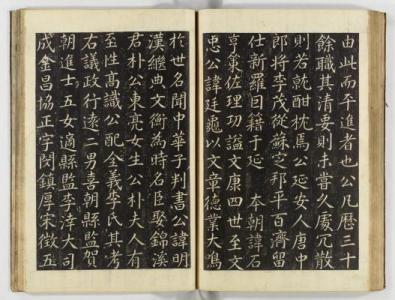 由此而平進者也公凡歷三十
餘職其清要則未嘗久處冗散
則若就酣枕焉公延安人唐中
郎將李茂從蘇定邦平百濟留
仕新羅因籍于延 本朝諱石
亨策佐理功謚文康四世至文
忠公諱廷龜以文章德業大鳴
於世名聞中華子判書公諱明
漢繼典文衡為時名臣聚錦溪
君朴公東亮女生公朴夫人有
至性高識公配全義李氏其考
右議政行遠二男喜朝縣監賀
朝進士五女適縣監李涬大司
成金昌協正字閔鎮厚宋徵五